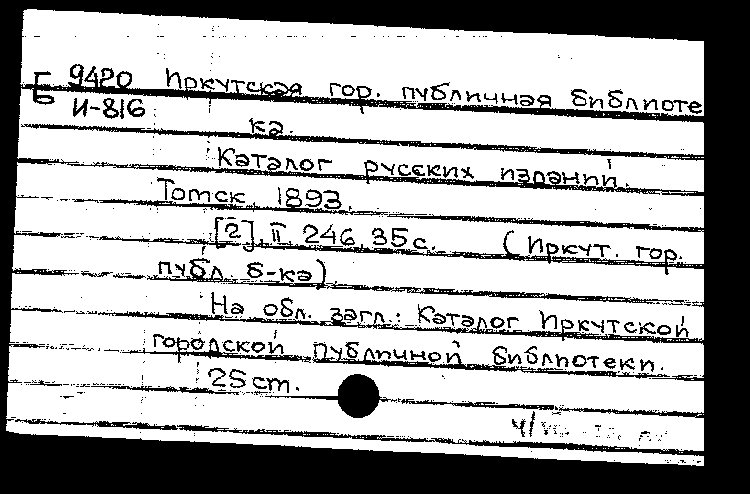 Б 9420 Иркутская гор. публичная библиоте
И-816
ка.
Каталог русских изданий.
Томск, 1893.
[2], II, 246, 35 с. (Иркут. гор.
публ. б-ка)
На обл. загл.: Каталог Иркутской
городской публичной библиотеки.
25 ст.